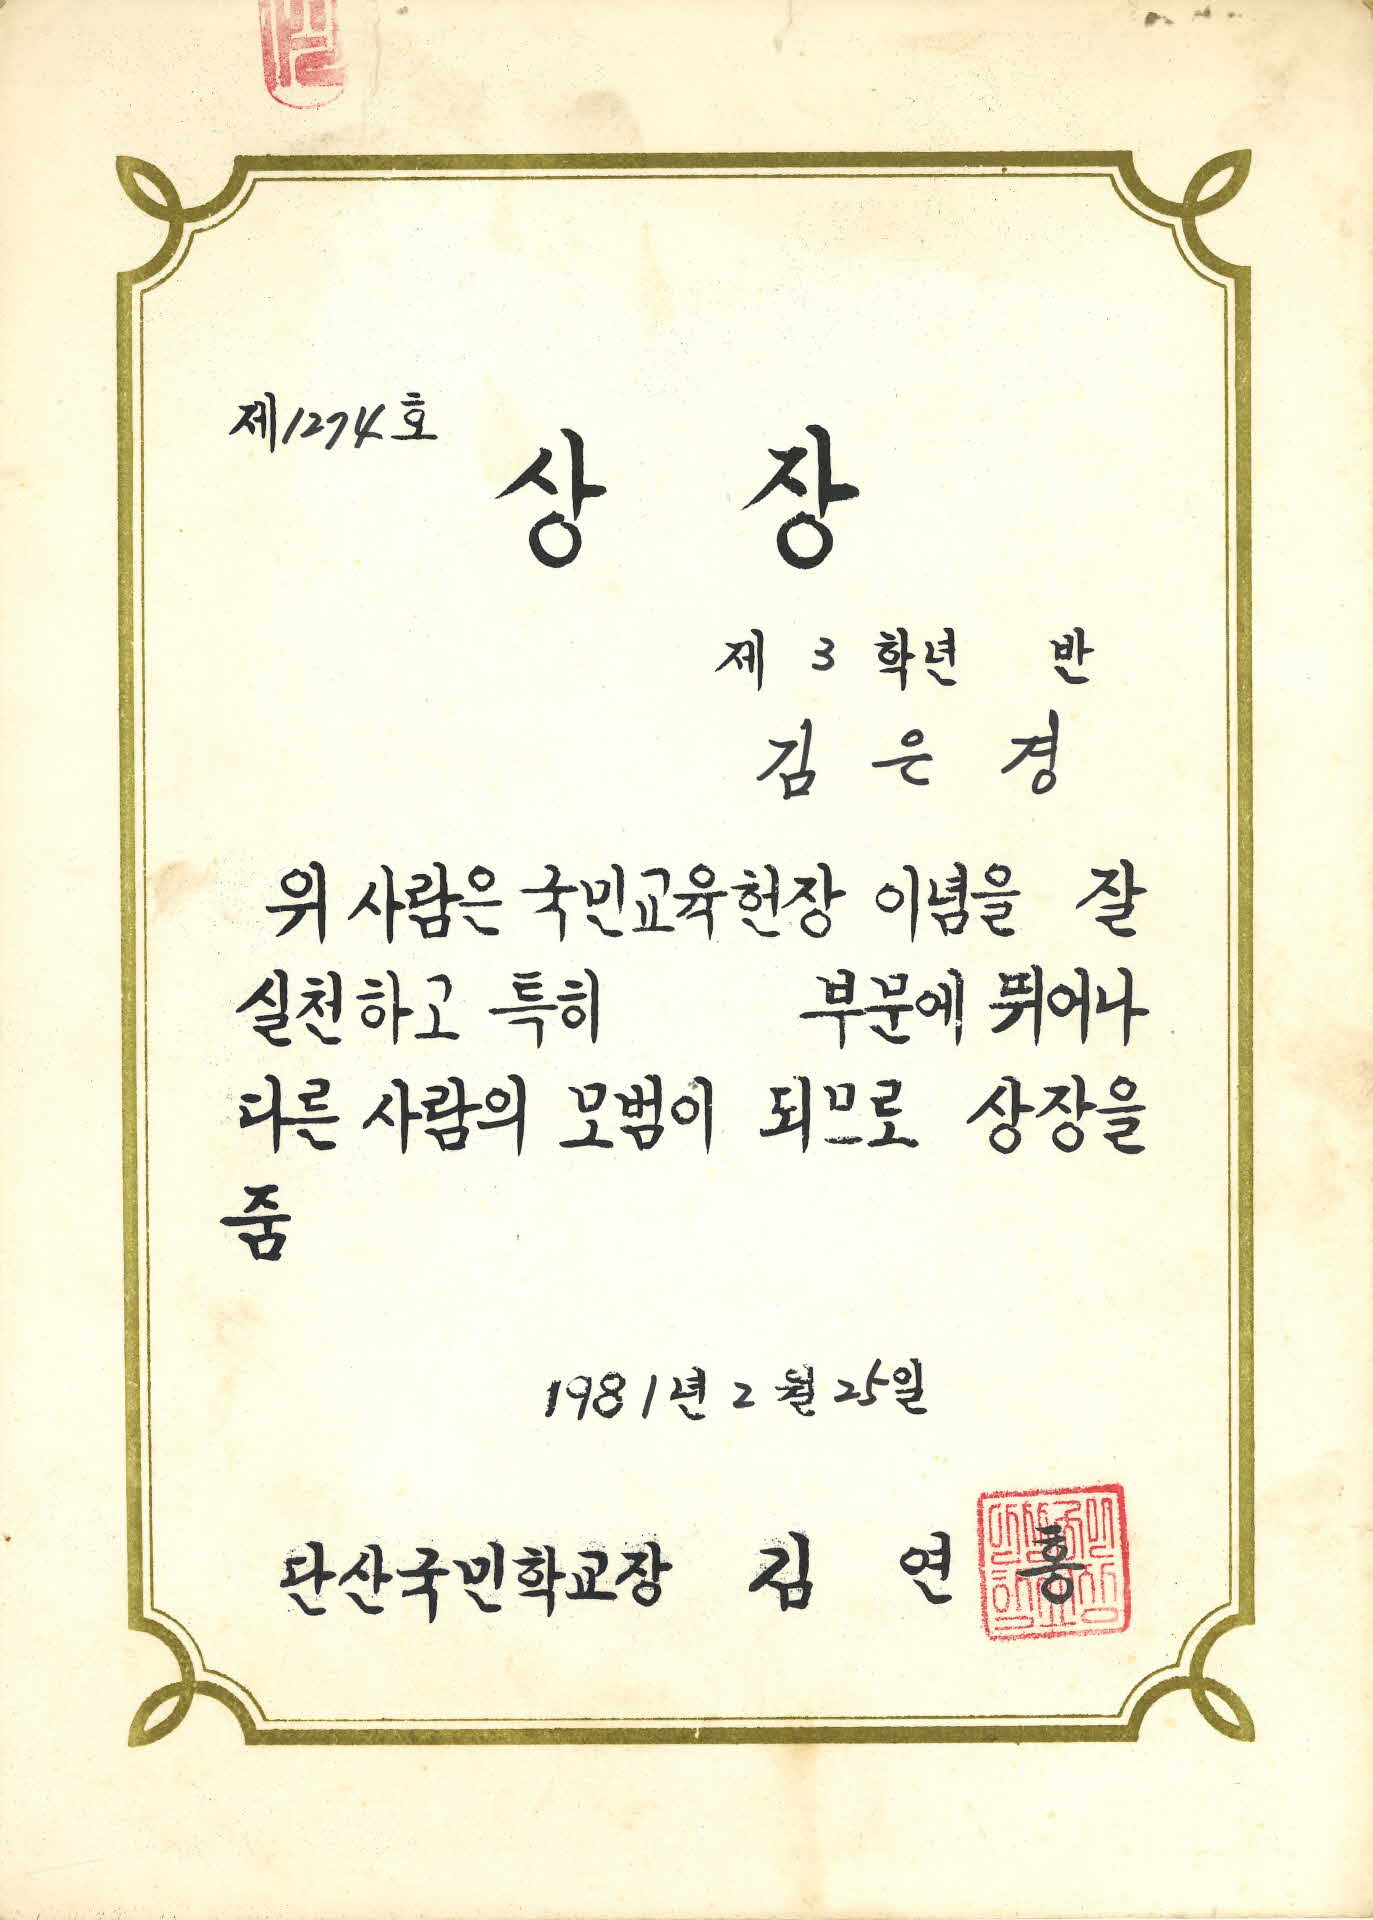 제1274호
상 장
제 3 학년 반
김 은 경
위 사람은 국민교육헌장 이념을 잘
실천하고 특히 부문에 뛰어나
다른 사람의 모범이 되므로 상장을
줌
1981년 2월 25일
단산국민학교장 김 연 홍